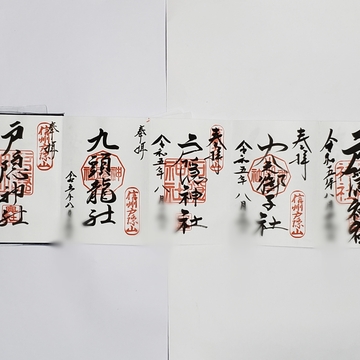 令和五年八月
奉拝
信州戸隠山
火之御子社
令和五年八月
奉拝
戸隠神社
令和五年八月
奉拝
信州戸隠山
九頭龍社
令和五年八月
奉拝
信州戸隠山
戸隠神社